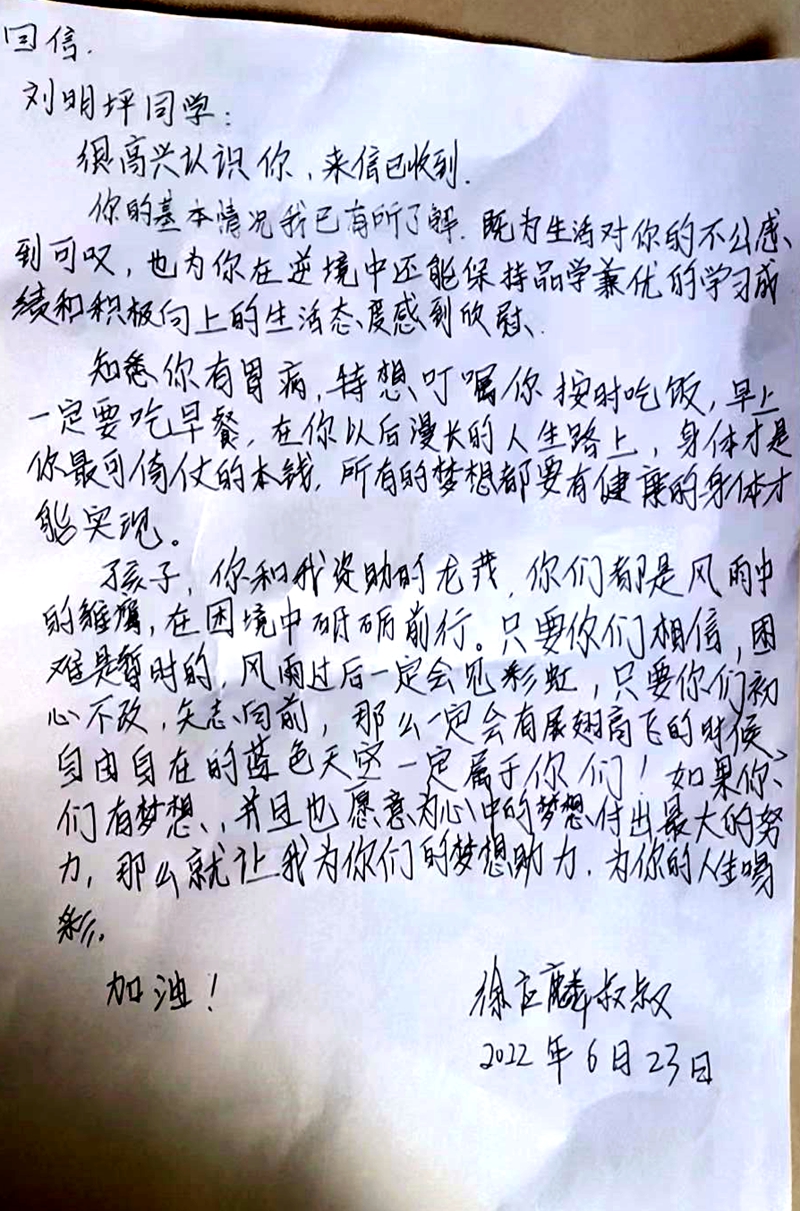 回信.
刘明坪同学：
很高兴认识你，来信已收到.
你的基本情况我已有所了解.既为生活对你的不公感
到可叹，也为你在逆境中还能保持品学兼优的学习成
绩和积极向上的生活态度感到欣慰、
知悉你有胃病，特想叮嘱你按时吃饭，早上
一定要吃早餐.在你以后漫长的人生路上，身体才是
你最可倚仗的本钱.所有的梦想都要有健康的身体才
能实现。
孩子，你和我资助的龙茂，你们都是风雨中
的雏鹰，在困境中砥砺前行。只要你们相信，困
难是暂时的，风雨过后一定会见彩虹，只要你们初
心不改，矢志向前，那么一定会有展翅高飞的时候、
自由自在的蓝色天空一定属于你们！如果你
们有梦想、并且也愿意为心中的梦想付出最大的努
力，那么就让我为你们的梦想助力.为你的人生喝
彩。
加油！
徐应麟叔叔
2022年6月23日